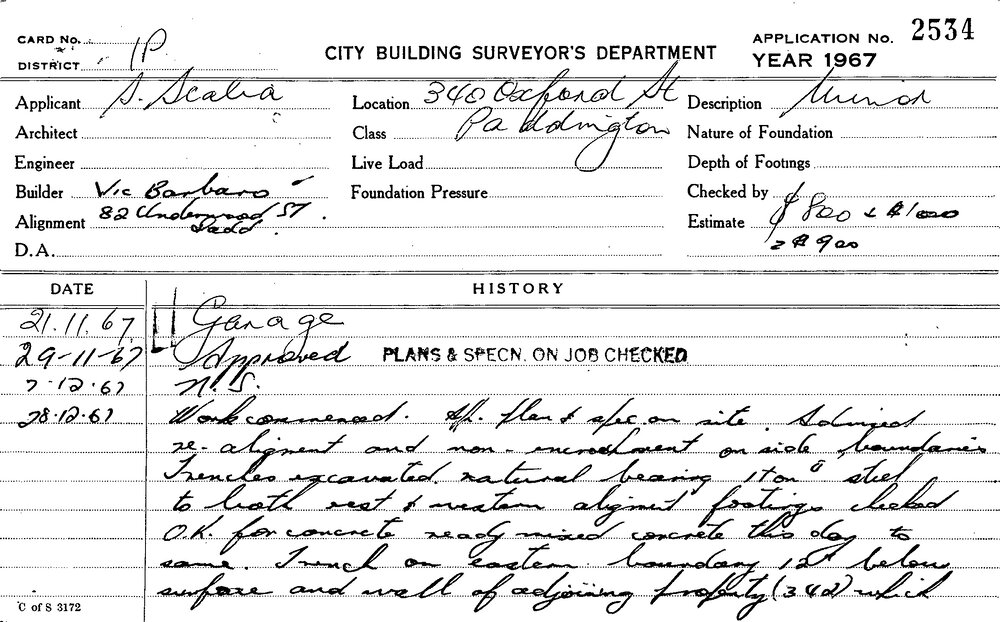 CARD No. 1P
DISTRICT
CITY BUILDING SURVEYOR'S DEPARTMENT
APPLICATION No. 2534
YEAR 1967
Applicant S. Scalia
Location 340 Oxford St
Description Minor
Architect
Class Paddington
Nature of Foundation
Engineer
Live Load
Depth of Footings
Builder Vic Barbaro
Foundation Pressure
Checked by
Alignment 82 Underwood ST.
Padd.
Estimate $800 & $1000
$900
D.A.
DATE
HISTORY
21.11.67 Garage
29-11-67 Approved PLANS & SPECN. ON JOB CHECKED
7.12.67 N.S.
28.12.67 Work commenced. plan & spec on site. Advised
re-aligment and non-encrochment on side boundaries
Trenches excavated. natural bearing 1 ton steel
to both east & western aligment footings checked
O.K. for concrete ready mixed concrete this day to
same. Trench on eastern boundary 12" below
surface and wall of adjoining property (342) which
C of S 3172